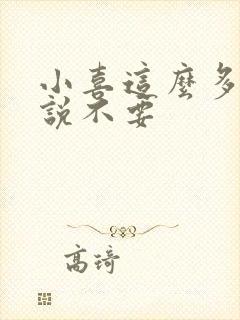 小喜這麼多
說不要
高琦